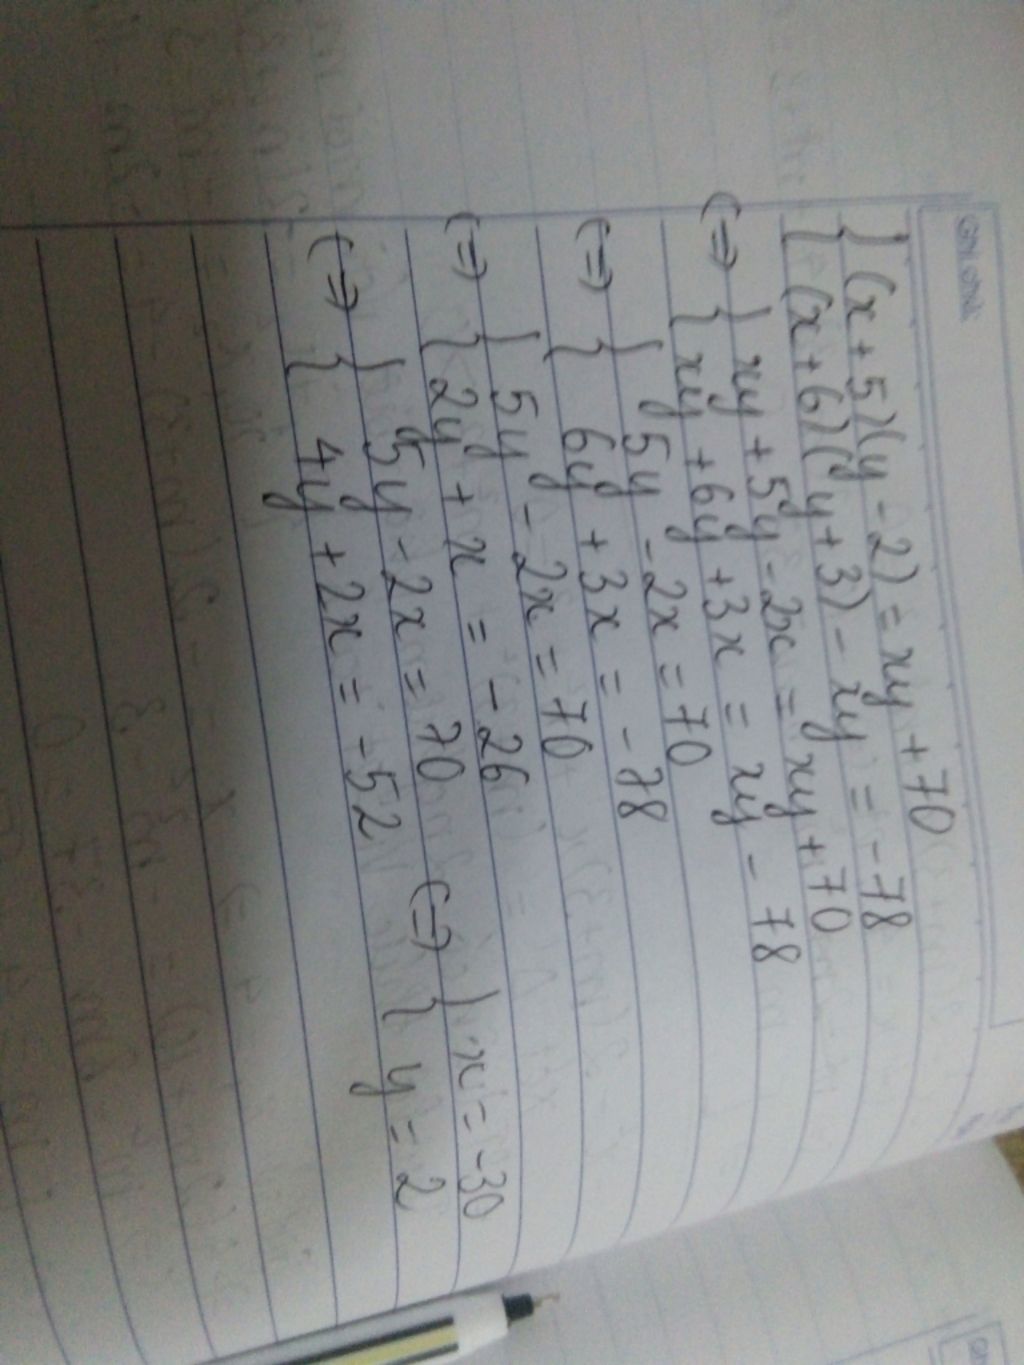 { (x + 5)(y - 2) = xy + 70
{ (x + 6)(y + 3) - xy = -78
(=) { xy + 5y - 2x = xy + 70
{ xy + 6y + 3x = xy - 78
(=) { 5y - 2x = 70
{ 6y + 3x = -78
(=) { 5y - 2x = 70
{ 2y + x = -26
(=) { 5y - 2x = 70 (=) { x = -30
{ 4y + 2x = -52 { y = 2